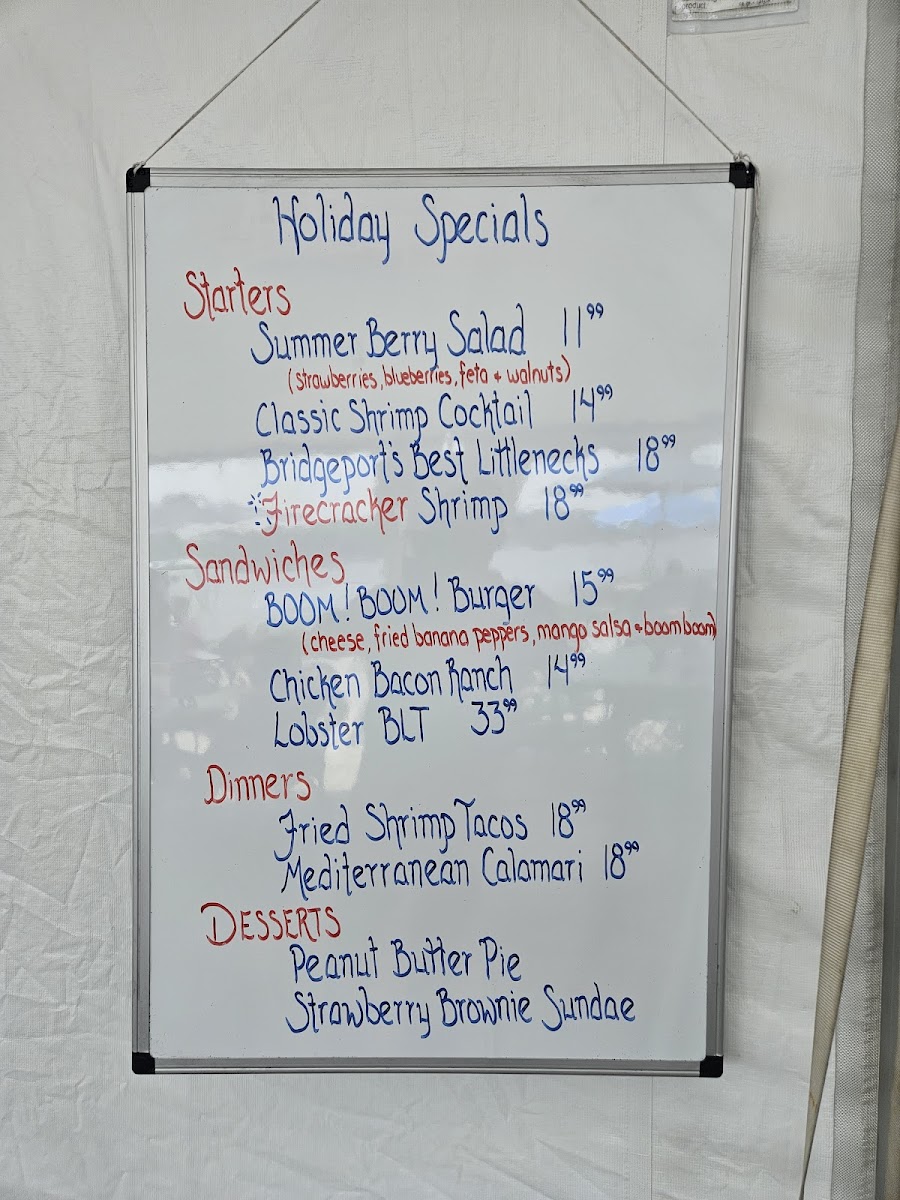 product
Holiday Specials
Starters
Summer Berry Salad 11⁹⁹
(strawberries, blueberries, feta + walnuts)
Classic Shrimp Cocktail 14⁹⁹
Bridgeport's Best Littlenecks 18⁹⁹
Firecracker Shrimp 18⁹⁹
Sandwiches
BOOM! BOOM! Burger 15⁹⁹
(cheese, fried banana peppers, mango salsa + boom boom)
Chicken Bacon Ranch 14⁹⁹
Lobster BLT 33⁹⁹
Dinners
Fried Shrimp Tacos 18⁹⁹
Mediterranean Calamari 18⁹⁹
DESSERTS
Peanut Butter Pie
Strawberry Brownie Sundae